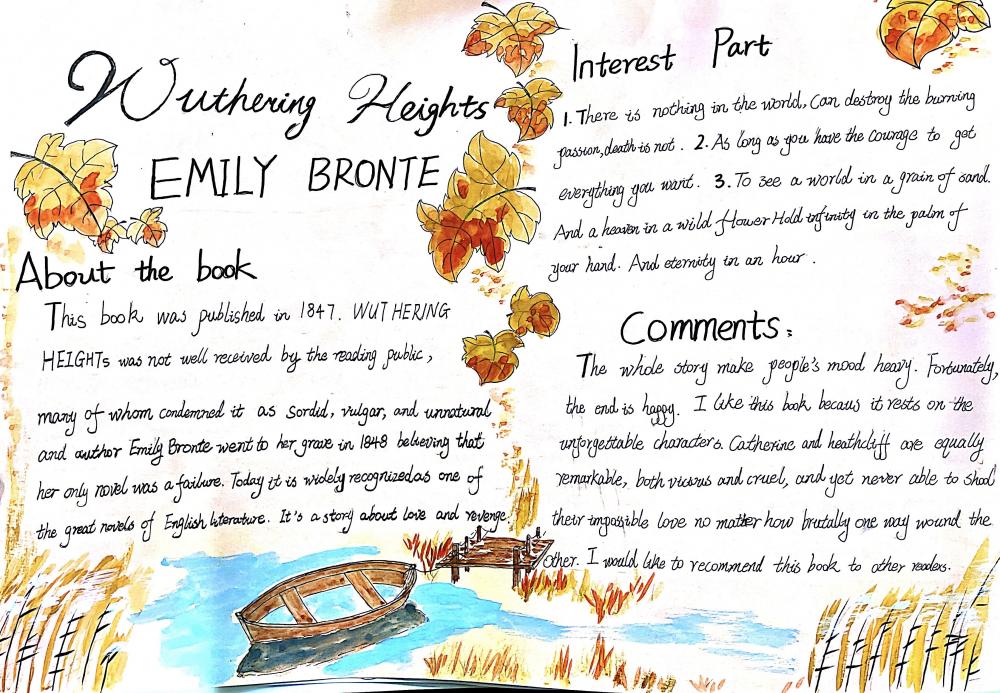 Wuthering Heights
EMILY BRONTE
About the book
This book was published in 1847. WUTHERING
HEIGHTs was not well received by the reading public,
many of whom condemned it as sordid, vulgar, and unnatural
and author Emily Bronte went to her grave in 1848 believing that
her only novel was a failure. Today it is widely recognized as one of
the great novels of English literature. It's a story about love and revenge
Interest Part
1. There is nothing in the world, Can destroy the burning
passion, death is not. 2. As long as you have the courage to get
everything you want. 3. To see a world in a grain of sand.
And a heaven in a wild flower Hold infinity in the palm of
your hand. And eternity in an hour.
Comments:
The whole story make people's mood heavy. Fortunately,
the end is happy. I like this book becaus it rests on the
unforgettable characters. Catherine and heathcliff are equally
remarkable, both vicious and cruel, and yet never able to shed
their impossible love no matter how brutally one way wound the
other. I would like to recommend this book to other readers.